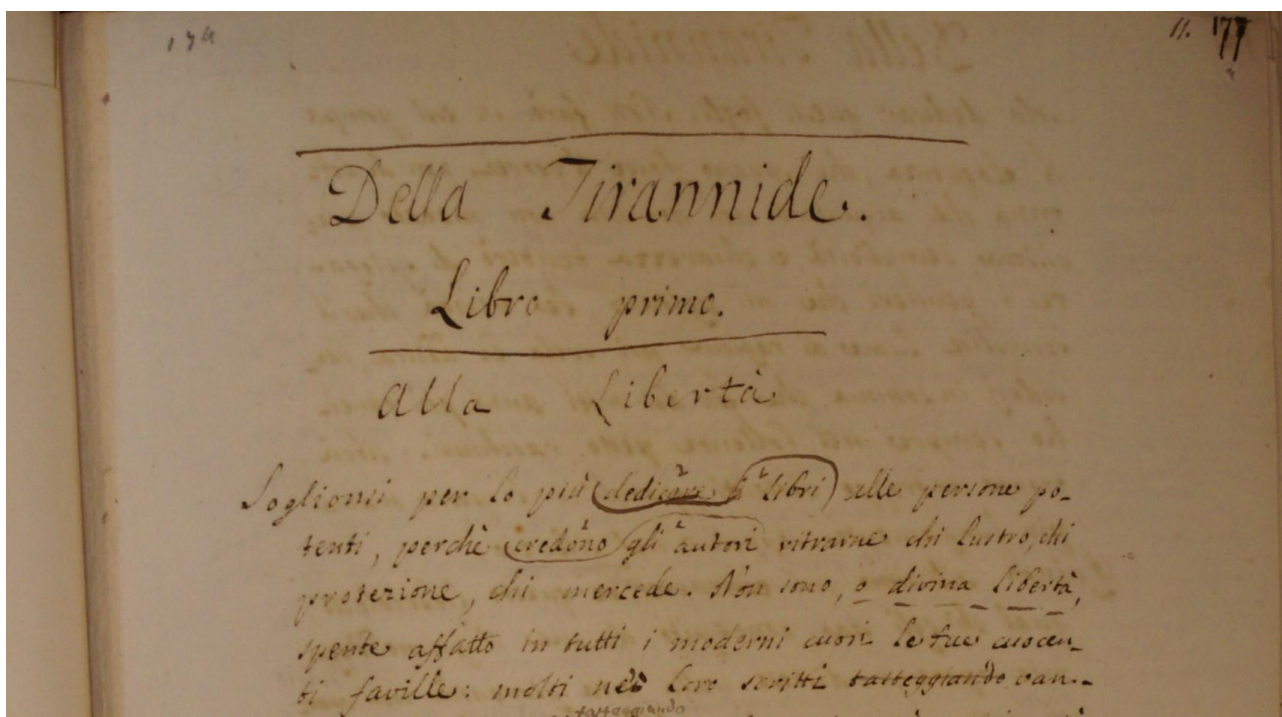 179
11. 177
Della Tirannide.
Libro primo.
Alla Libertà
Soglionsi per lo più dedicare i libri alle persone po-
tenti, perchè credono gli autori ritrarne chi lustro, chi
protezione, chi mercede. Non sono, o divina libertà,
spente affatto in tutti i moderni cuori le tue cocen-
ti faville: molti ne' loro scritti tasteggiando van-
tasteggiando